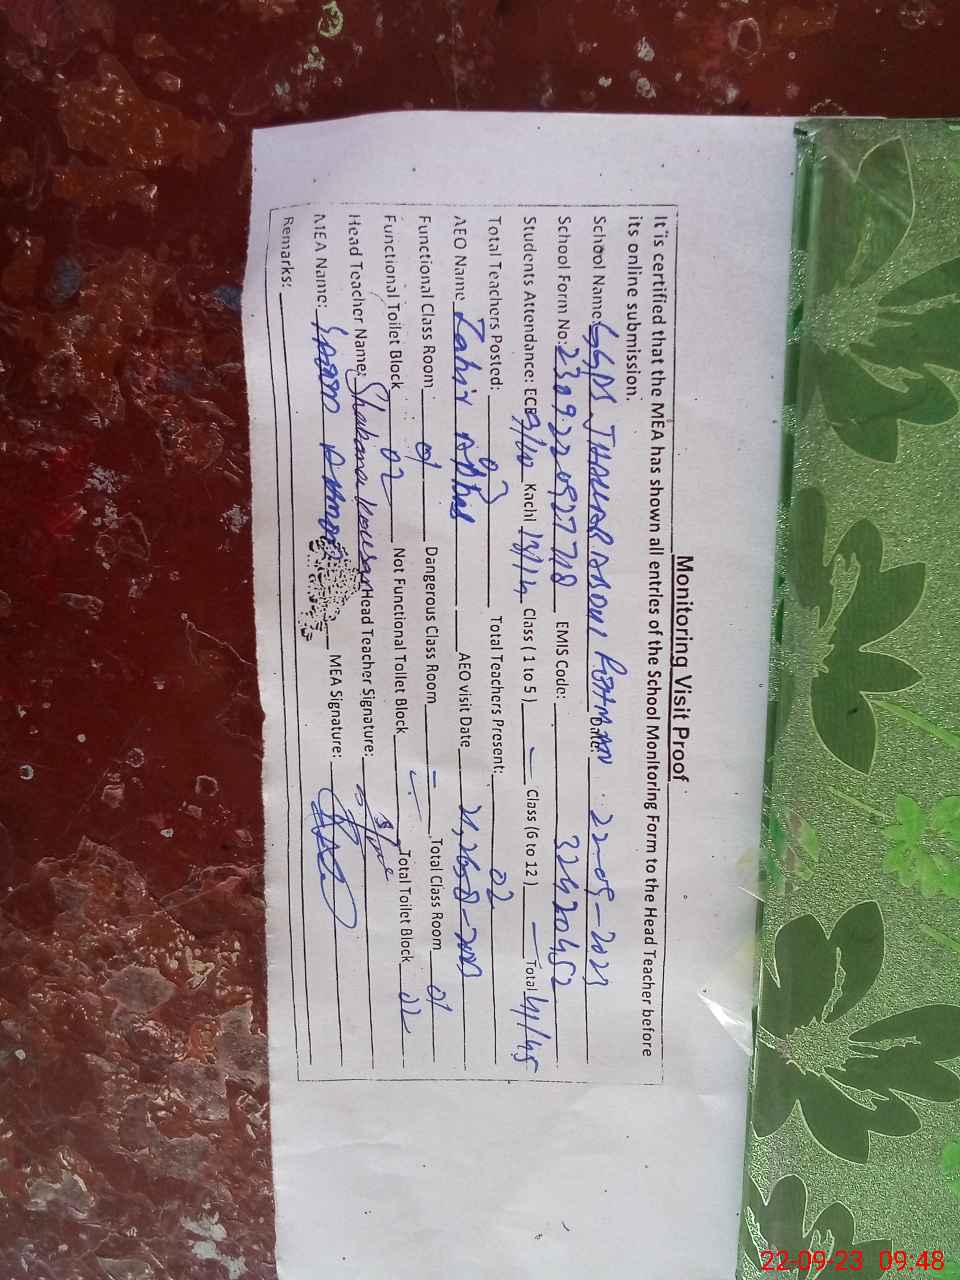 Monitoring Visit Proof
It is certified that the MEA has shown all entries of the School Monitoring Form to the Head Teacher before
its online submission.
School Name: GGPS JHALLAR Date: 22-09-2023
School Form No: EMIS Code: 32420452
Students Attendance: ECE Kachi 13/14 Class ( 1 to 5 ) — Class (6 to 12 ) — Total 41/45
Total Teachers Posted: Total Teachers Present: 02
AEO Name Zahir AEO visit Date
Functional Class Room 01 Dangerous Class Room – Total Class Room 01
Functional Toilet Block 02 Not Functional Toilet Block Total Toilet Block 02
Head Teacher Name: Shabana Kousar Head Teacher Signature:
MEA Name: MEA Signature:
Remarks:
22-09-23 09:48